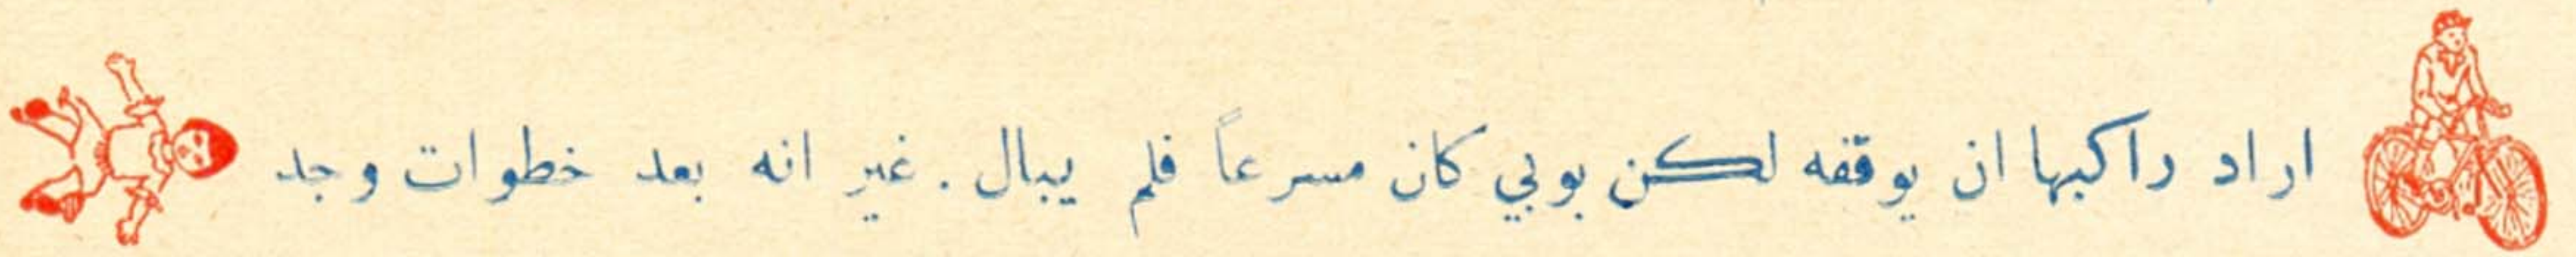 اراد راكبها ان يوقفه لكن بوبي كان مسرعاً فلم يبال . غير انه بعد خطوات وجد